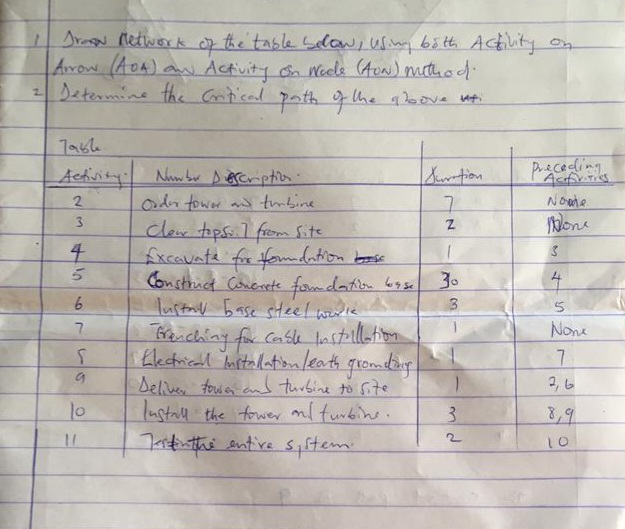 1 Draw Network of the table below, using both Activity on
Arrow (AOA) and Activity on Node (AON) method.
2 Determine the Critical path of the above
Table
Activity. Number Description. Duration Preceding Activities
2 Order tower and turbine 7 None
3 Clear topsoil from site 2 None
4 Excavate for foundation 1 3
5 Construct Concrete foundation base 30 4
6 Install base steel work 3 5
7 Trenching for Cable Installation 1 None
8 Electrical Installation/earth grounding 1 7
9 Deliver tower and turbine to site 1 2,6
10 Install the tower and turbine. 3 8,9
11 Test the entire system. 2 10